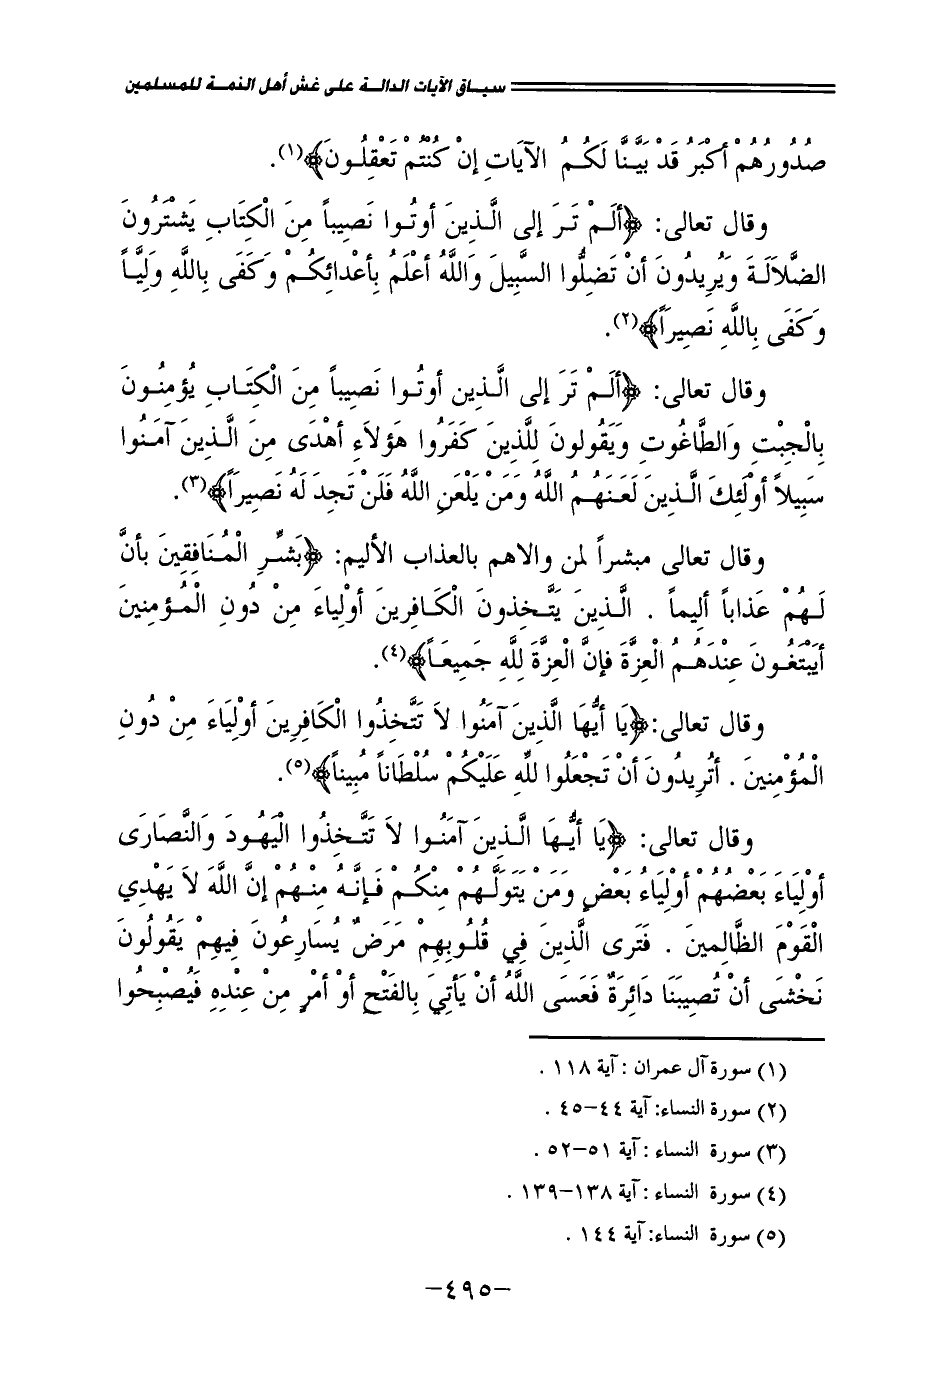 سياق الآيات الدالة على غش أهل الذمة للمسلمين
صُدُورُهُمْ أكْبَرُ قَدْ بَيَّنَّا لَكُمُ الآيَاتِ إنْ كُنْتُمْ تَعْقِلُونَ﴾(١).
وقال تعالى: ﴿ألَمْ تَرَ إلى الَّذِينَ أوتُوا نَصِيباً مِنَ الْكِتَابِ يَشْتَرُونَ
الضَّلاَلَةَ وَيُرِيدُونَ أنْ تَضِلُّوا السَّبِيلَ وَاللَّهُ أعْلَمُ بِأعْدائِكُمْ وَكَفَى بِاللَّهِ وَلِيًّا
وَكَفَى بِاللَّهِ نَصِيرَاً﴾(٢).
وقال تعالى: ﴿ألَمْ تَرَ إلى الَّذِين أوتُوا نَصِيباً مِنَ الْكِتَابِ يُؤمِنُونَ
بِالْجِبْتِ وَالطَّاغُوتِ وَيَقُولونَ لِلَّذِينَ كَفَرُوا هَؤلاَءِ أهْدَى مِنَ الَّذِينَ آمَنُوا
سَبِيلاً أولَئِكَ الَّذِينَ لَعَنَهُمُ اللَّهُ وَمَنْ يَلْعَنِ اللَّهُ فَلَنْ تَجِدَ لَهُ نَصِيراً﴾(٣).
وقال تعالى مبشراً لمن والاهم بالعذاب الأليم: ﴿بَشِّرِ الْمُنَافِقِينَ بأنَّ
لَهُمْ عَذَاباً ألِيماً . الَّذِينَ يَتَّخِذونَ الْكَافِرِينَ أوْلِياءَ مِنْ دُونِ الْمُؤمِنِينَ
أيَبْتَغُونَ عِنْدَهُمُ الْعِزَّةَ فإنَّ الْعِزَّةَ لِلَّهِ جَمِيعَاً﴾(٤).
وقال تعالى:﴿يَا أيُّهَا الَّذِينَ آمَنُوا لاَ تَتَّخِذُوا الْكَافِرِينَ أوْلِيَاءَ مِنْ دُونِ
الْمُؤْمِنِينَ . أتُرِيدُونَ أنْ تَجْعَلُوا للَّهِ عَلَيْكُمْ سُلْطَاناً مُبِيناً﴾(٥).
وقال تعالى: ﴿يَا أيُّهَا الَّذِينَ آمَنُوا لاَ تَتَّخِذُوا الْيَهُودَ وَالنَّصَارَى
أوْلِيَاءَ بَعْضُهُمْ أوْلِيَاءُ بَعْضٍ وَمَنْ يَتَوَلَّهُمْ مِنْكُمْ فَإنَّهُ مِنْهُمْ إنَّ اللَّهَ لاَ يَهْدِي
الْقَوْمَ الظَّالِمِينَ . فَتَرى الَّذِينَ فِي قُلُوبِهِمْ مَرَضٌ يُسَارِعُونَ فِيهِمْ يَقُولُونَ
نَخْشَى أنْ تُصِيبَنَا دَائِرَةٌ فَعَسَى اللَّهُ أنْ يَأتِيَ بِالفَتْحِ أوْ أمْرٍ مِنْ عِنْدِهِ فَيُصْبِحُوا
(١) سورة آل عمران : آية ١١٨ .
(٢) سورة النساء: آية ٤٤–٤٥ .
(٣) سورة النساء : آية ٥١–٥٢ .
(٤) سورة النساء : آية ١٣٨–١٣٩ .
(٥) سورة النساء: آية ١٤٤ .
–٤٩٥–